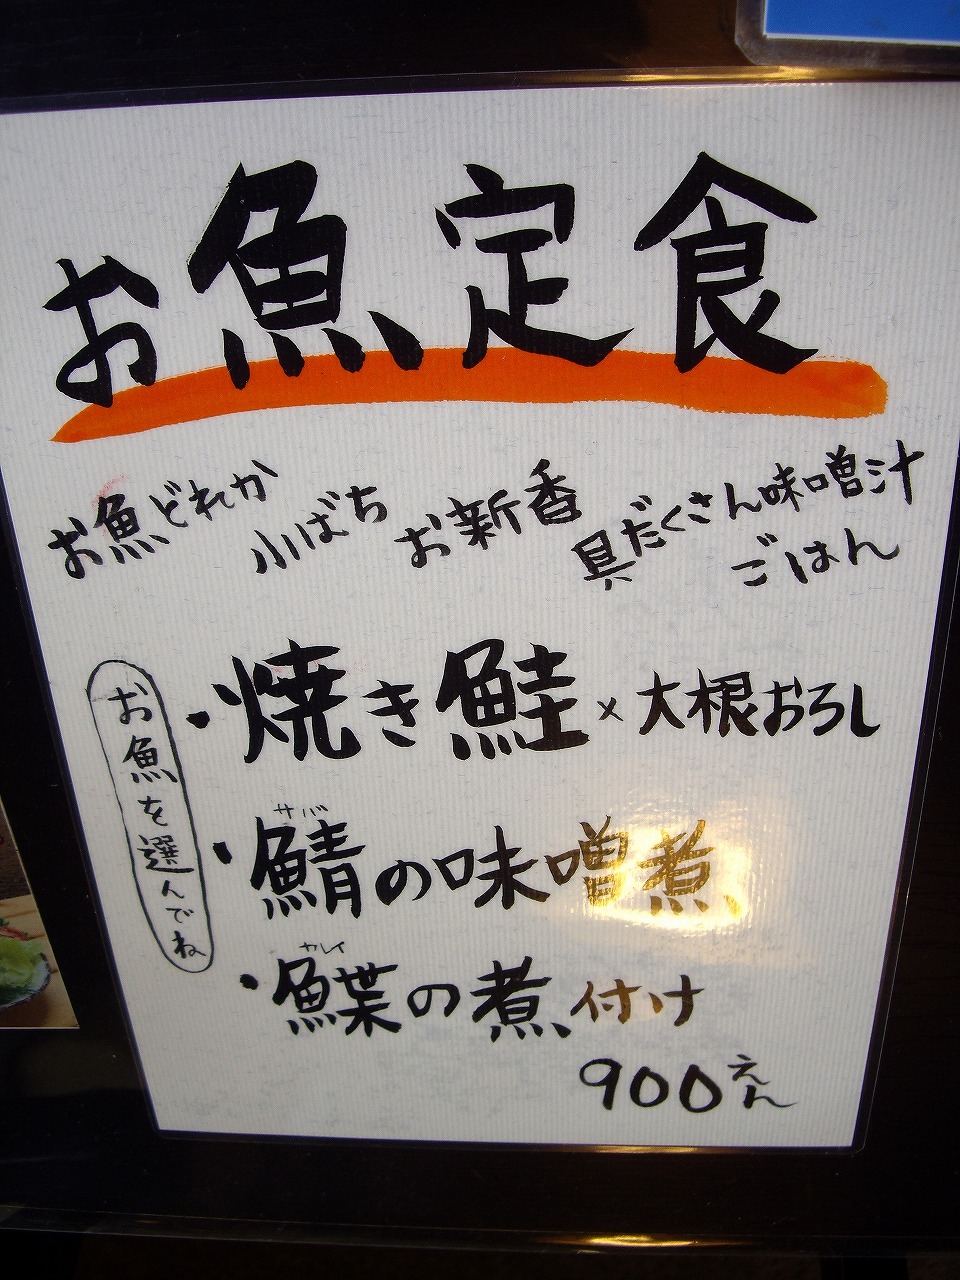 お魚定食
お魚どれか 小ばち お新香 具だくさん味噌汁
ごはん
お魚を選んでね
・焼き鮭×大根おろし
サバ
・鯖の味噌煮
カレイ
・鰈の煮付け
900えん